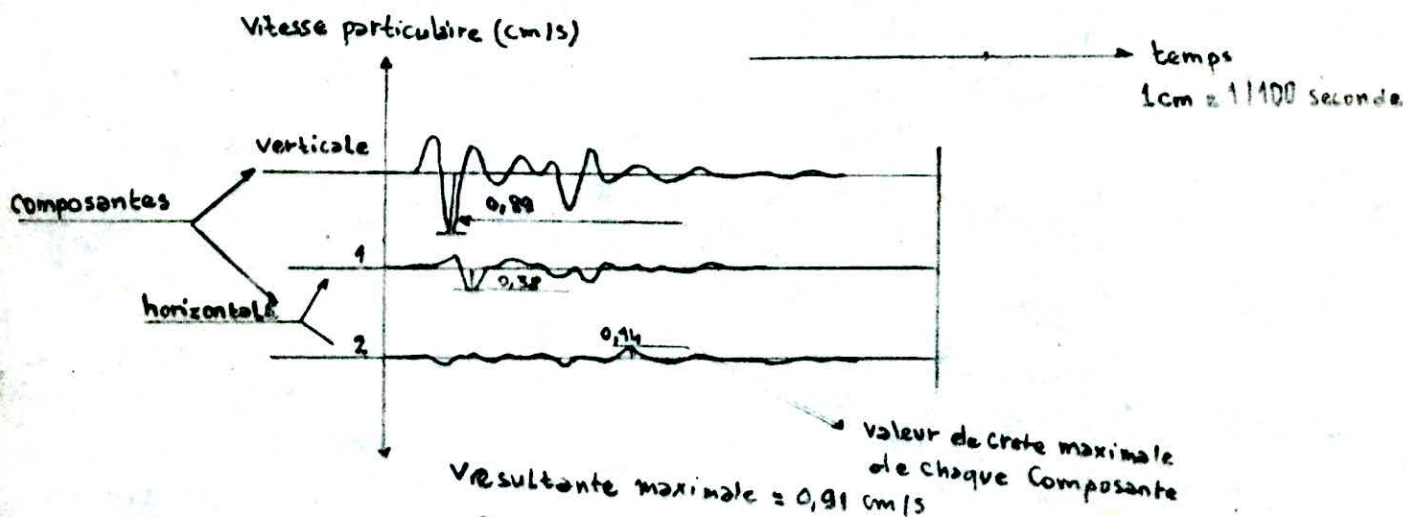 Vitesse particulaire (cm/s)
temps
1cm = 1/100 seconde
verticale
composantes
0,89
1
0,38
horizontale
0,14
2
valeur de crete maximale
de chaque Composante
Vresultante maximale = 0,91 cm/s